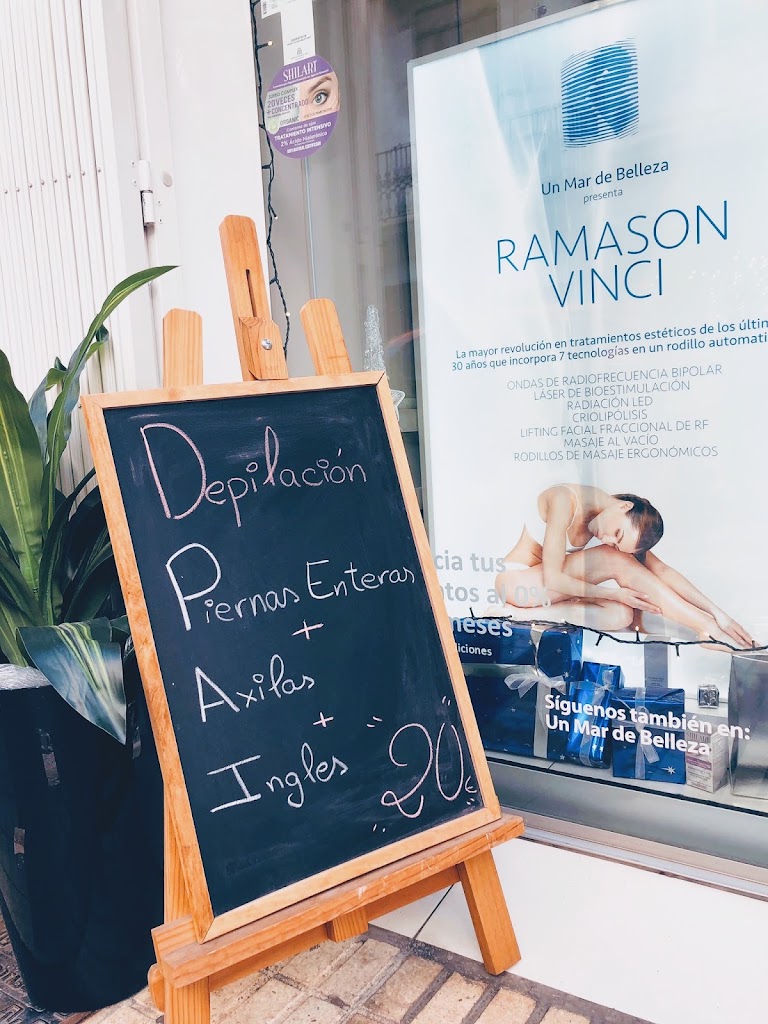 SHILART
20 VECES
+ CONCENTRADO
ORGANIC
TRATAMIENTO INTENSIVO
2% Ácido Hialurónico
Un Mar de Belleza
presenta
RAMASON
VINCI
La mayor revolución en tratamientos estéticos de los últin
30 años que incorpora 7 tecnologías en un rodillo automati
ONDAS DE RADIOFRECUENCIA BIPOLAR
LÁSER DE BIOESTIMULACIÓN
RADIACIÓN LED
CRIOLIPÓLISIS
LIFTING FACIAL FRACCIONAL DE RF
MASAJE AL VACÍO
RODILLOS DE MASAJE ERGONÓMICOS
Depilación
Piernas Enteras
+
Axilas
+
Ingles
"20€"
cia tus
ntos al 0%
meses
diciones
Síguenos también en:
Un Mar de Belleza